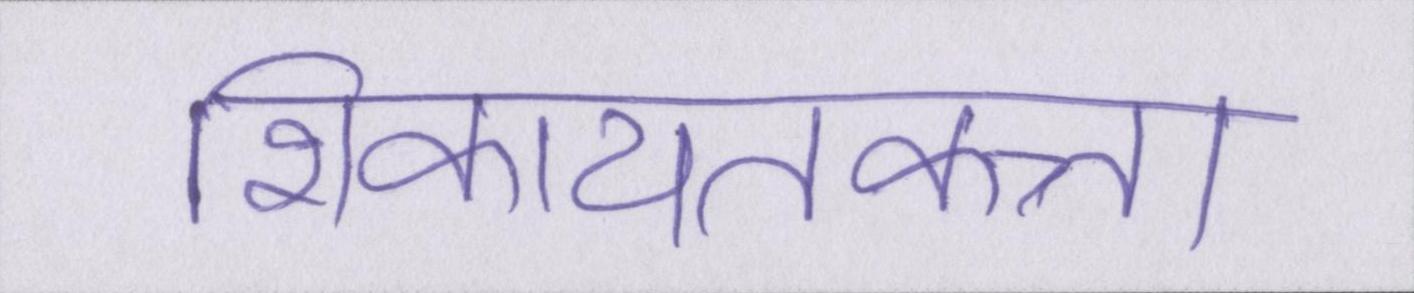 शिकायतकत्ता